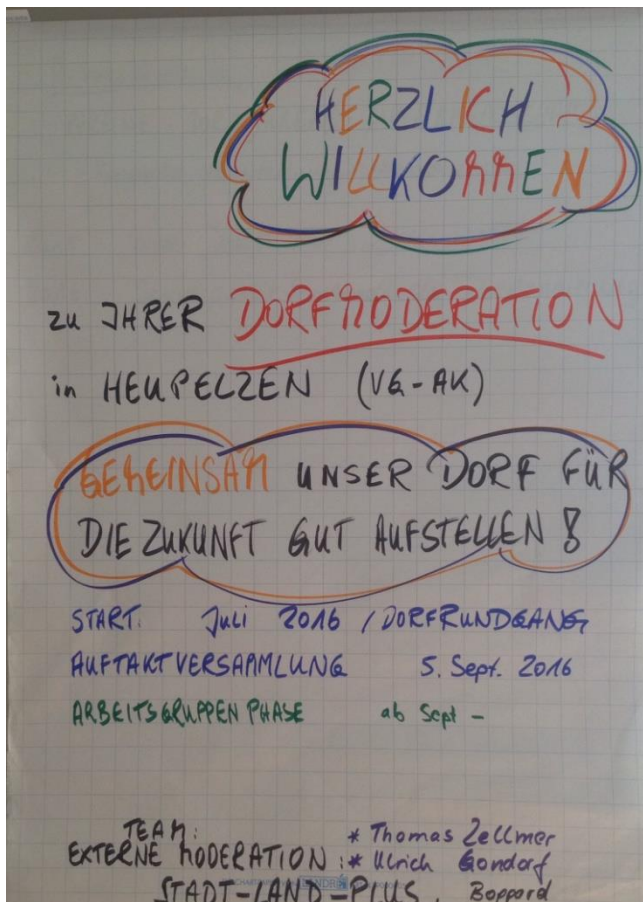 HERZLICH
WILLKOMMEN
zu IHRER DORFMODERATION
in HEUPELZEN (VG-AK)
GEMEINSAM UNSER DORF FÜR
DIE ZUKUNFT GUT AUFSTELLEN!
START: Juli 2016 / DORFRUNDGANG
AUFTAKTVERSAMMLUNG 5. Sept. 2016
ARBEITSGRUPPEN PHASE ab Sept -
TEAM: * Thomas Zellmer
EXTERNE MODERATION: * Ulrich Gondorf
STADT-LAND-PLUS, Boppard